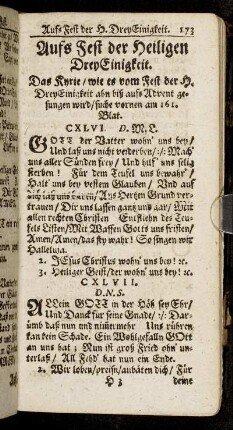 Auffs Fest der H. DreyEinigkeit. 173
Auffs Fest der Heiligen
DreyEinigkeit.
Das Kyrie/ wie es vom Fest der H.
DreyEinigkeit ahn biß auffs Advent ge-
sungen wird/ suche vornen am 161.
Blat.
CXLVI. D. M. L.
GOTT der Vatter wohn' uns bey/
Und laß uns nicht verderben/:/: Mach'
uns aller Sünden frey/ Und hilf' uns selig
sterben! Für dem Teufel uns bewahr'/
Halt' uns bey vestem Glauben/ Und auf
dich laß uns bauen/ Aus Hertzen Grund ver-
trauen/ Dir uns lassen gantz und gar/ Mit
allen rechten Christen Entfliehn des Teu-
fels Listen/ Mit Waffen Gotts uns fristen/
Amen/ Amen/ das sey wahr! So singen wir
Halleluja.
2. JEsus Christus wohn' uns bey! ꝛc.
3. Heiliger Geist/ der wohn' uns bey! ꝛc.
CXLVII.
D. N. S.
ALLein GOTT in der Höh sey Ehr/
Und Danck für seine Gnade/:/: Dar-
ümb daß nun und nimmermehr Uns rühren
kan kein Schade. Ein Wohlgefalln GOtt
an uns hat; Nun ist groß Fried ohn' un-
terlaß/ All Fehd' hat nun ein Ende.
2. Wir loben/ preisn/ anbäten dich/ Für
H 3 deine